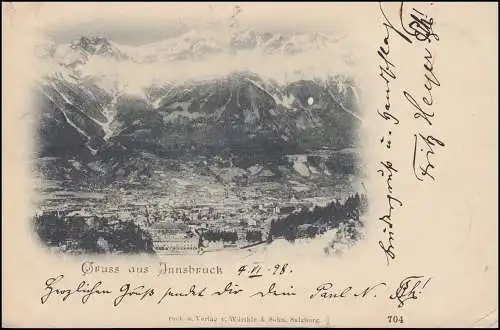 Gruss aus Innsbruck 4. VI. 98.
Herzlichen Gruß sendet dir dein Paul N.
Verlag v. Würthle & Sohn, Salzburg.
704
Brudergruß u. Handschlag
Fritz Heyer